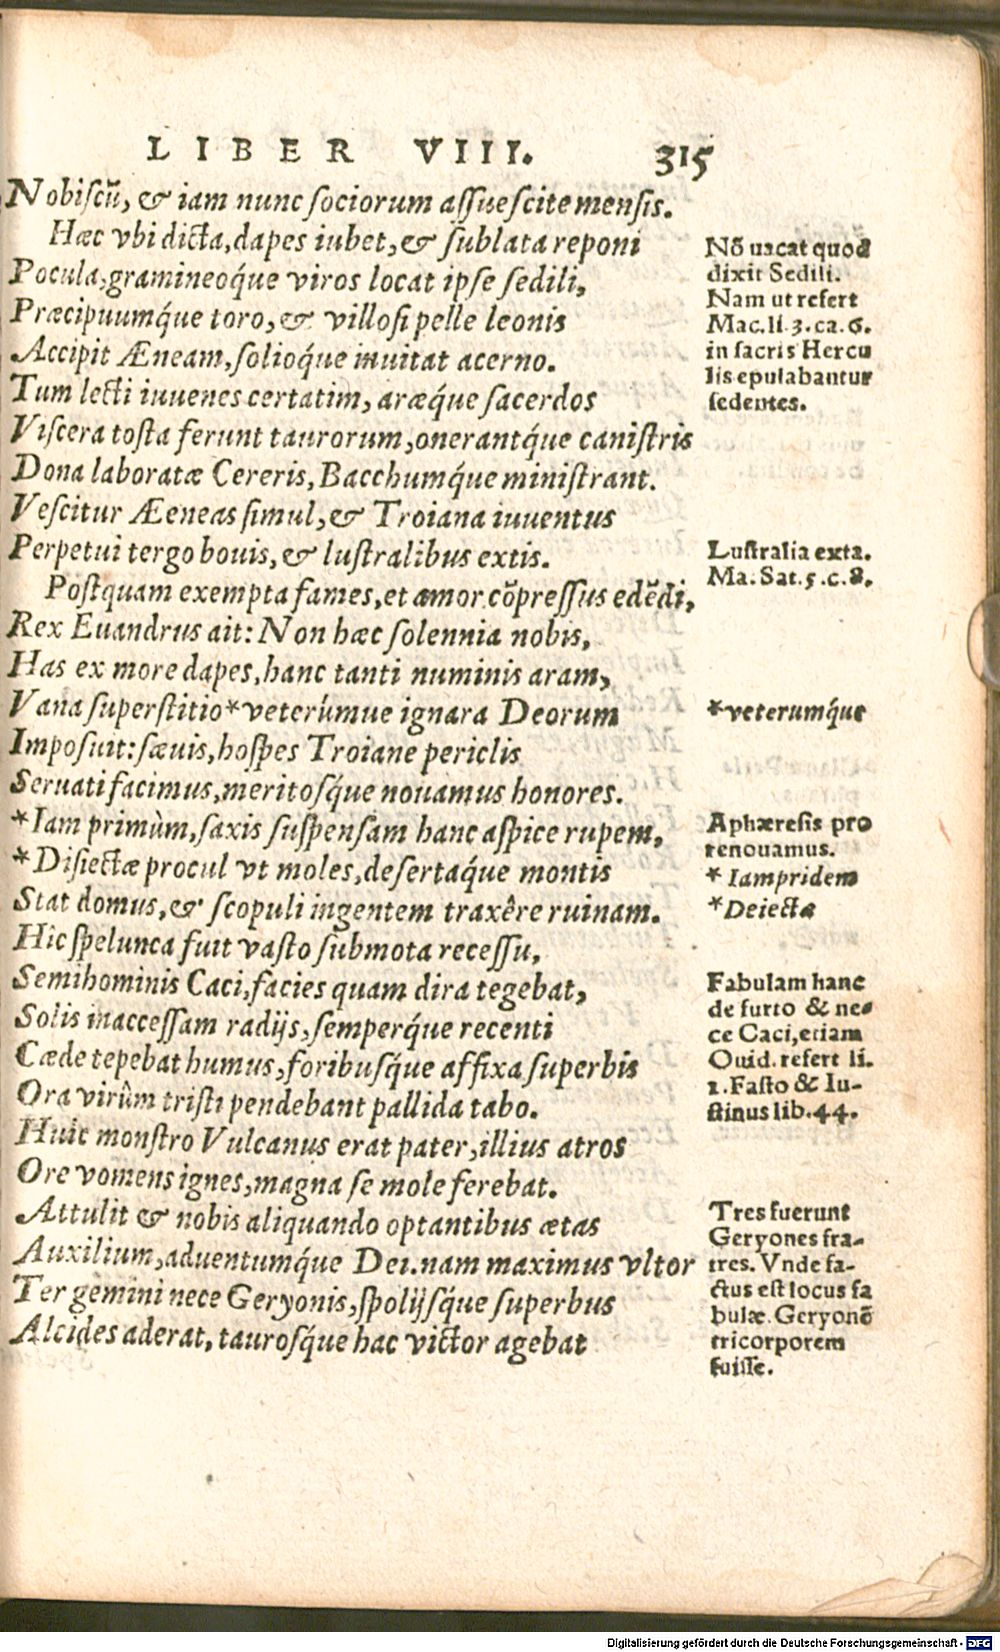 LIBER VIII. 315
Nobiscũ, & iam nunc sociorum assuescite mensis.
Hæc vbi dicta, dapes iubet, & sublata reponi
Pocula, gramineoq́ue viros locat ipse sedili,
Præcipuumq́ue toro, & villosi pelle leonis
Accipit Æneam, solioq́ue inuitat acerno.
Tum lecti iuuenes certatim, aræq́ue sacerdos
Viscera tosta ferunt taurorum, onerantq́ue canistris
Dona laboratæ Cereris, Bacchumq́ue ministrant.
Vescitur Æeneas simul, & Troiana iuuentus
Perpetui tergo bouis, & lustralibus extis.
Postquam exempta fames, et amor cõpressus edẽdi,
Rex Euandrus ait: Non hæc solennia nobis,
Has ex more dapes, hanc tanti numinis aram,
Vana superstitio*veterúmue ignara Deorum
Imposuit: sæuis, hospes Troiane periclis
Seruati facimus, meritosq́ue nouamus honores.
*Iam primùm, saxis suspensam hanc aspice rupem,
*Disiectæ procul vt moles, desertaq́ue montis
Stat domus, & scopuli ingentem traxêre ruinam.
Hic spelunca fuit vasto submota recessu,
Semihominis Caci, facies quam dira tegebat,
Solis inaccessam radijs, semperq́ue recenti
Cæde tepebat humus, foribusq́ue affixa superbis
Ora virûm tristi pendebant pallida tabo.
Huic monstro Vulcanus erat pater, illius atros
Ore vomens ignes, magna se mole ferebat.
Attulit & nobis aliquando optantibus ætas
Auxilium, aduentumq́ue Dei. nam maximus vltor
Ter gemini nece Geryonis, spolijsq́ue superbus
Alcides aderat, taurosq́ue hac victor agebat
Nõ uacat quod
dixit Sedili.
Nam ut refert
Mac. li. 3. ca. 6.
in sacris Hercu
lis epulabantur
sedentes.
Lustralia exta.
Ma. Sat. 5. c. 8.
*veterumq́ue
Aphæresis pro
renouamus.
* Iampridem
*Deiectæ
Fabulam hanc
de furto & ne-
ce Caci, etiam
Ouid. refert li.
1. Fasto & Iu-
stinus lib. 44.
Tres fuerunt
Geryones fra-
tres. Vnde fa-
ctus est locus fa
bulæ. Geryonẽ
tricorporem
fuisse.
Digitalisierung gefördert durch die Deutsche Forschungsgemeinschaft - DFG